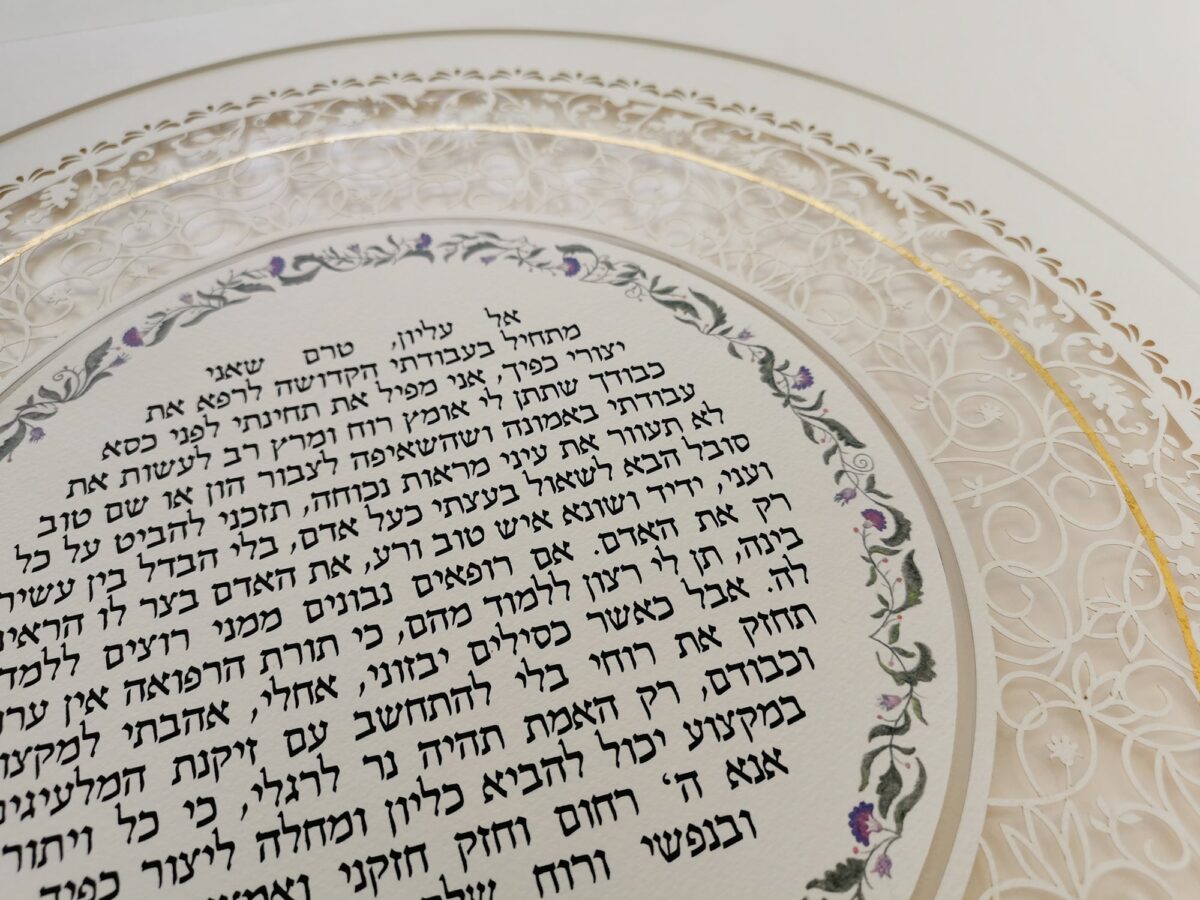 אל עליון, טרם שאני
מתחיל בעבודתי הקדושה לרפא את
יצורי כפיך, אני מפיל את תחינתי לפני כסא
כבודך שתתן לי אומץ רוח ומרץ רב לעשות את
עבודתי באמונה ושהשאיפה לצבור הון או שם טוב
לא תעוור את עיני מראות נכוחה, תזכני להביט על כל
סובל הבא לשאול בעצתי כעל אדם, בלי הבדל בין עשיר
ועני, ידיד ושונא איש טוב ורע, את האדם בצר לו
רק את האדם. אם רופאים נבונים ממני רוצים
בינה, תן לי רצון ללמוד מהם, כי תורת הרפואה אין
לה. אבל כאשר כסילים יבזוני, אחלי, אהבתי
תחזק את רוחי בלי להתחשב עם זיקנת
וכבודם, רק האמת תהיה נר לרגלי, כי כל ויתור
במקצוע יכול להביא כליון ומחלה ליצור כפיך
אנא ה' רחום וחזק חזקני
ובנפשי ורוח